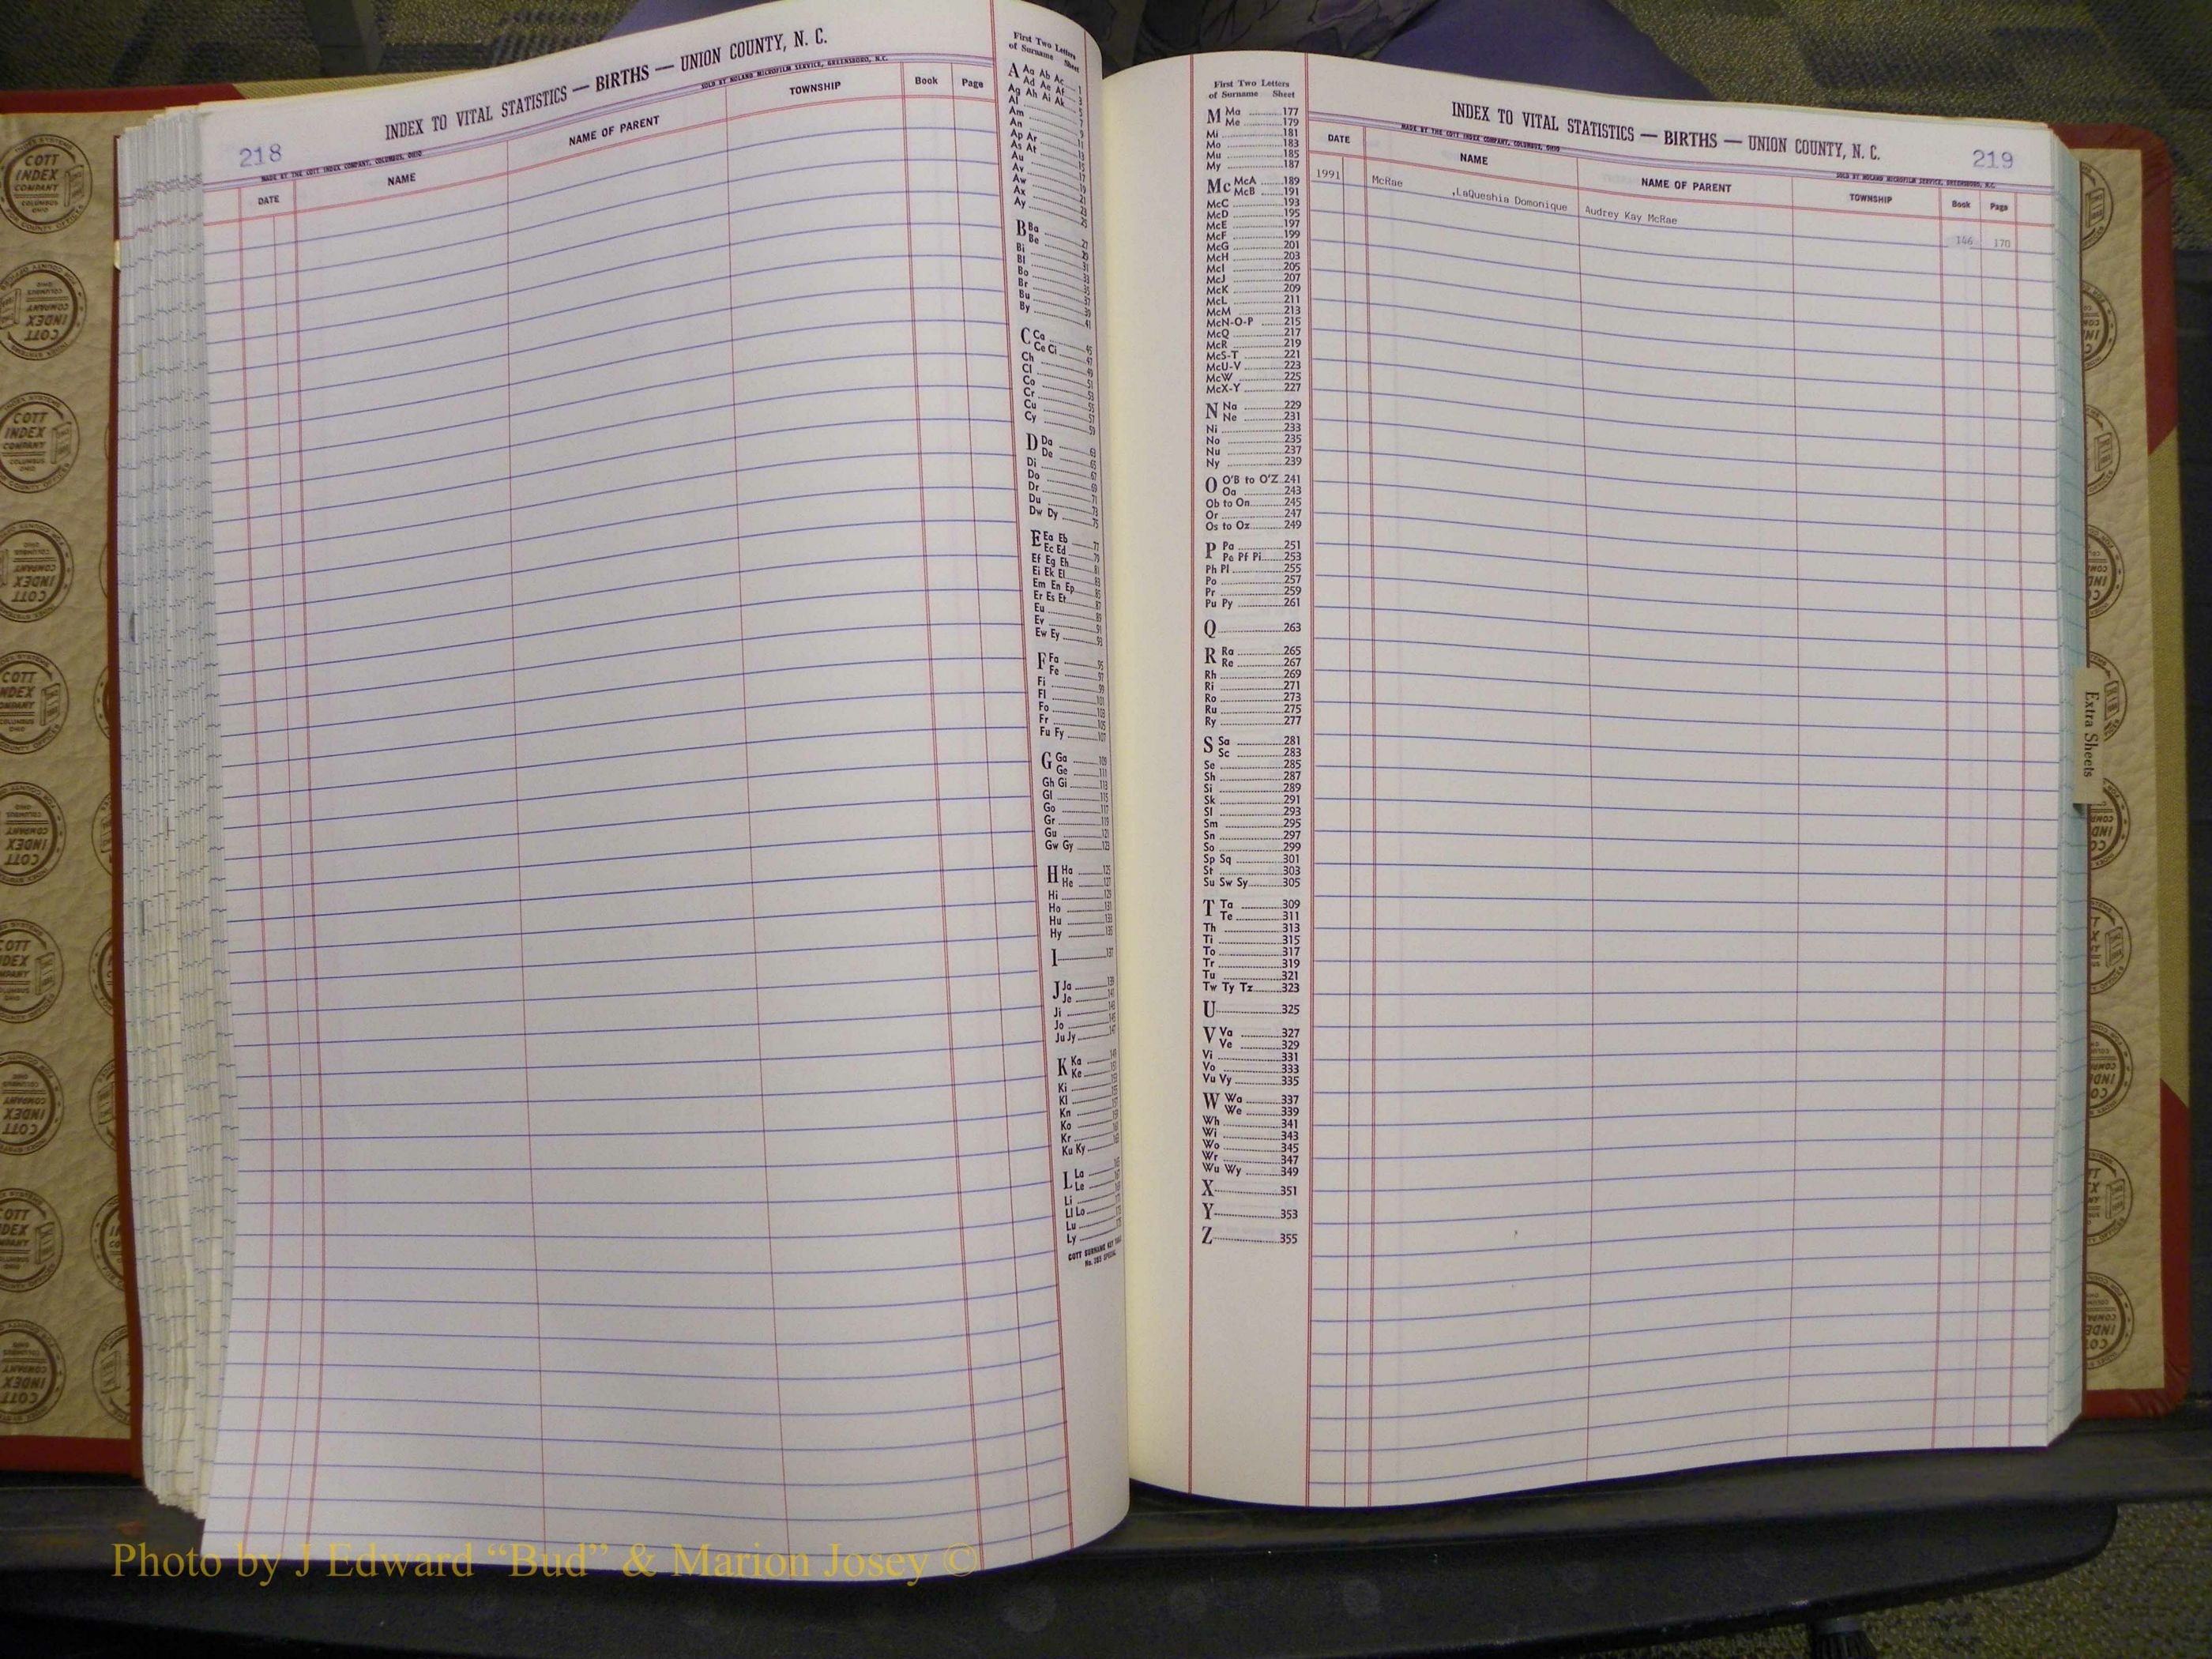 218
INDEX TO VITAL STATISTICS — BIRTHS — UNION COUNTY, N. C.
MADE BY THE COTT INDEX COMPANY, COLUMBUS, OHIO
SOLD BY NOLAND MICROFILM SERVICE, GREENSBORO, N.C.
DATE NAME NAME OF PARENT TOWNSHIP Book Page
First Two Letters
of Surname Sheet
A Aa Ab Ac 1
Ad Ae Af 3
Ag Ah Ai Ak 5
Al 7
Am 9
An 11
Ap Ar 13
As At 15
Au 17
Av 19
Aw 21
Ax 23
Ay 25
B Ba 27
Be 29
Bi 31
Bl 33
Bo 35
Br 37
Bu 39
By 41
C Ca 45
Ce Ci 47
Ch 49
Cl 51
Co 53
Cr 55
Cu 57
Cy 59
D Da 63
De 65
Di 67
Do 69
Dr 71
Du 73
Dw Dy 75
E Ea Eb 77
Ec Ed 79
Ef Eg Eh 81
Ei Ek El 83
Em En Ep 85
Er Es Et 87
Eu 89
Ev 91
Ew Ey 93
F Fa 95
Fe 97
Fi 99
Fl 101
Fo 103
Fr 105
Fu Fy 107
G Ga 109
Ge 111
Gh Gi 113
Gl 115
Go 117
Gr 119
Gu 121
Gw Gy 123
H Ha 125
He 127
Hi 129
Ho 131
Hu 133
Hy 135
I 137
J Ja 139
Je 141
Ji 143
Jo 145
Ju Jy 147
K Ka
Ke
Ki
Kl
Kn
Ko
Kr
Ku Ky
L La
Le
Li
Ll Lo
Lu
Ly
COTT SURNAME KEY
First Two Letters
of Surname Sheet
M Ma 177
Me 179
Mi 181
Mo 183
Mu 185
My 187
Mc McA 189
McB 191
McC 193
McD 195
McE 197
McF 199
McG 201
McH 203
McI 205
McJ 207
McK 209
McL 211
McM 213
McN-O-P 215
McQ 217
McR 219
McS-T 221
McU-V 223
McW 225
McX-Y 227
N Na 229
Ne 231
Ni 233
No 235
Nu 237
Ny 239
O O'B to O'Z 241
Oa 243
Ob to On 245
Or 247
Os to Oz 249
P Pa 251
Pe Pf Pi 253
Ph Pl 255
Po 257
Pr 259
Pu Py 261
Q 263
R Ra 265
Re 267
Rh 269
Ri 271
Ro 273
Ru 275
Ry 277
S Sa 281
Sc 283
Se 285
Sh 287
Si 289
Sk 291
Sl 293
Sm 295
Sn 297
So 299
Sp Sq 301
St 303
Su Sw Sy 305
T Ta 309
Te 311
Th 313
Ti 315
To 317
Tr 319
Tu 321
Tw Ty Tz 323
U 325
V Va 327
Ve 329
Vi 331
Vo 333
Vu Vy 335
W Wa 337
We 339
Wh 341
Wi 343
Wo 345
Wr 347
Wu Wy 349
X 351
Y 353
Z 355
INDEX TO VITAL STATISTICS — BIRTHS — UNION COUNTY, N. C.
219
MADE BY THE COTT INDEX COMPANY, COLUMBUS, OHIO
SOLD BY NOLAND MICROFILM SERVICE, GREENSBORO, N.C.
DATE NAME NAME OF PARENT TOWNSHIP Book Page
1991 McRae ,LaQueshia Domonique Audrey Kay McRae 146 170
Extra Sheets
COTT
INDEX
COMPANY
COLUMBUS
OHIO
Photo by J Edward “Bud” & Marion Josey ©